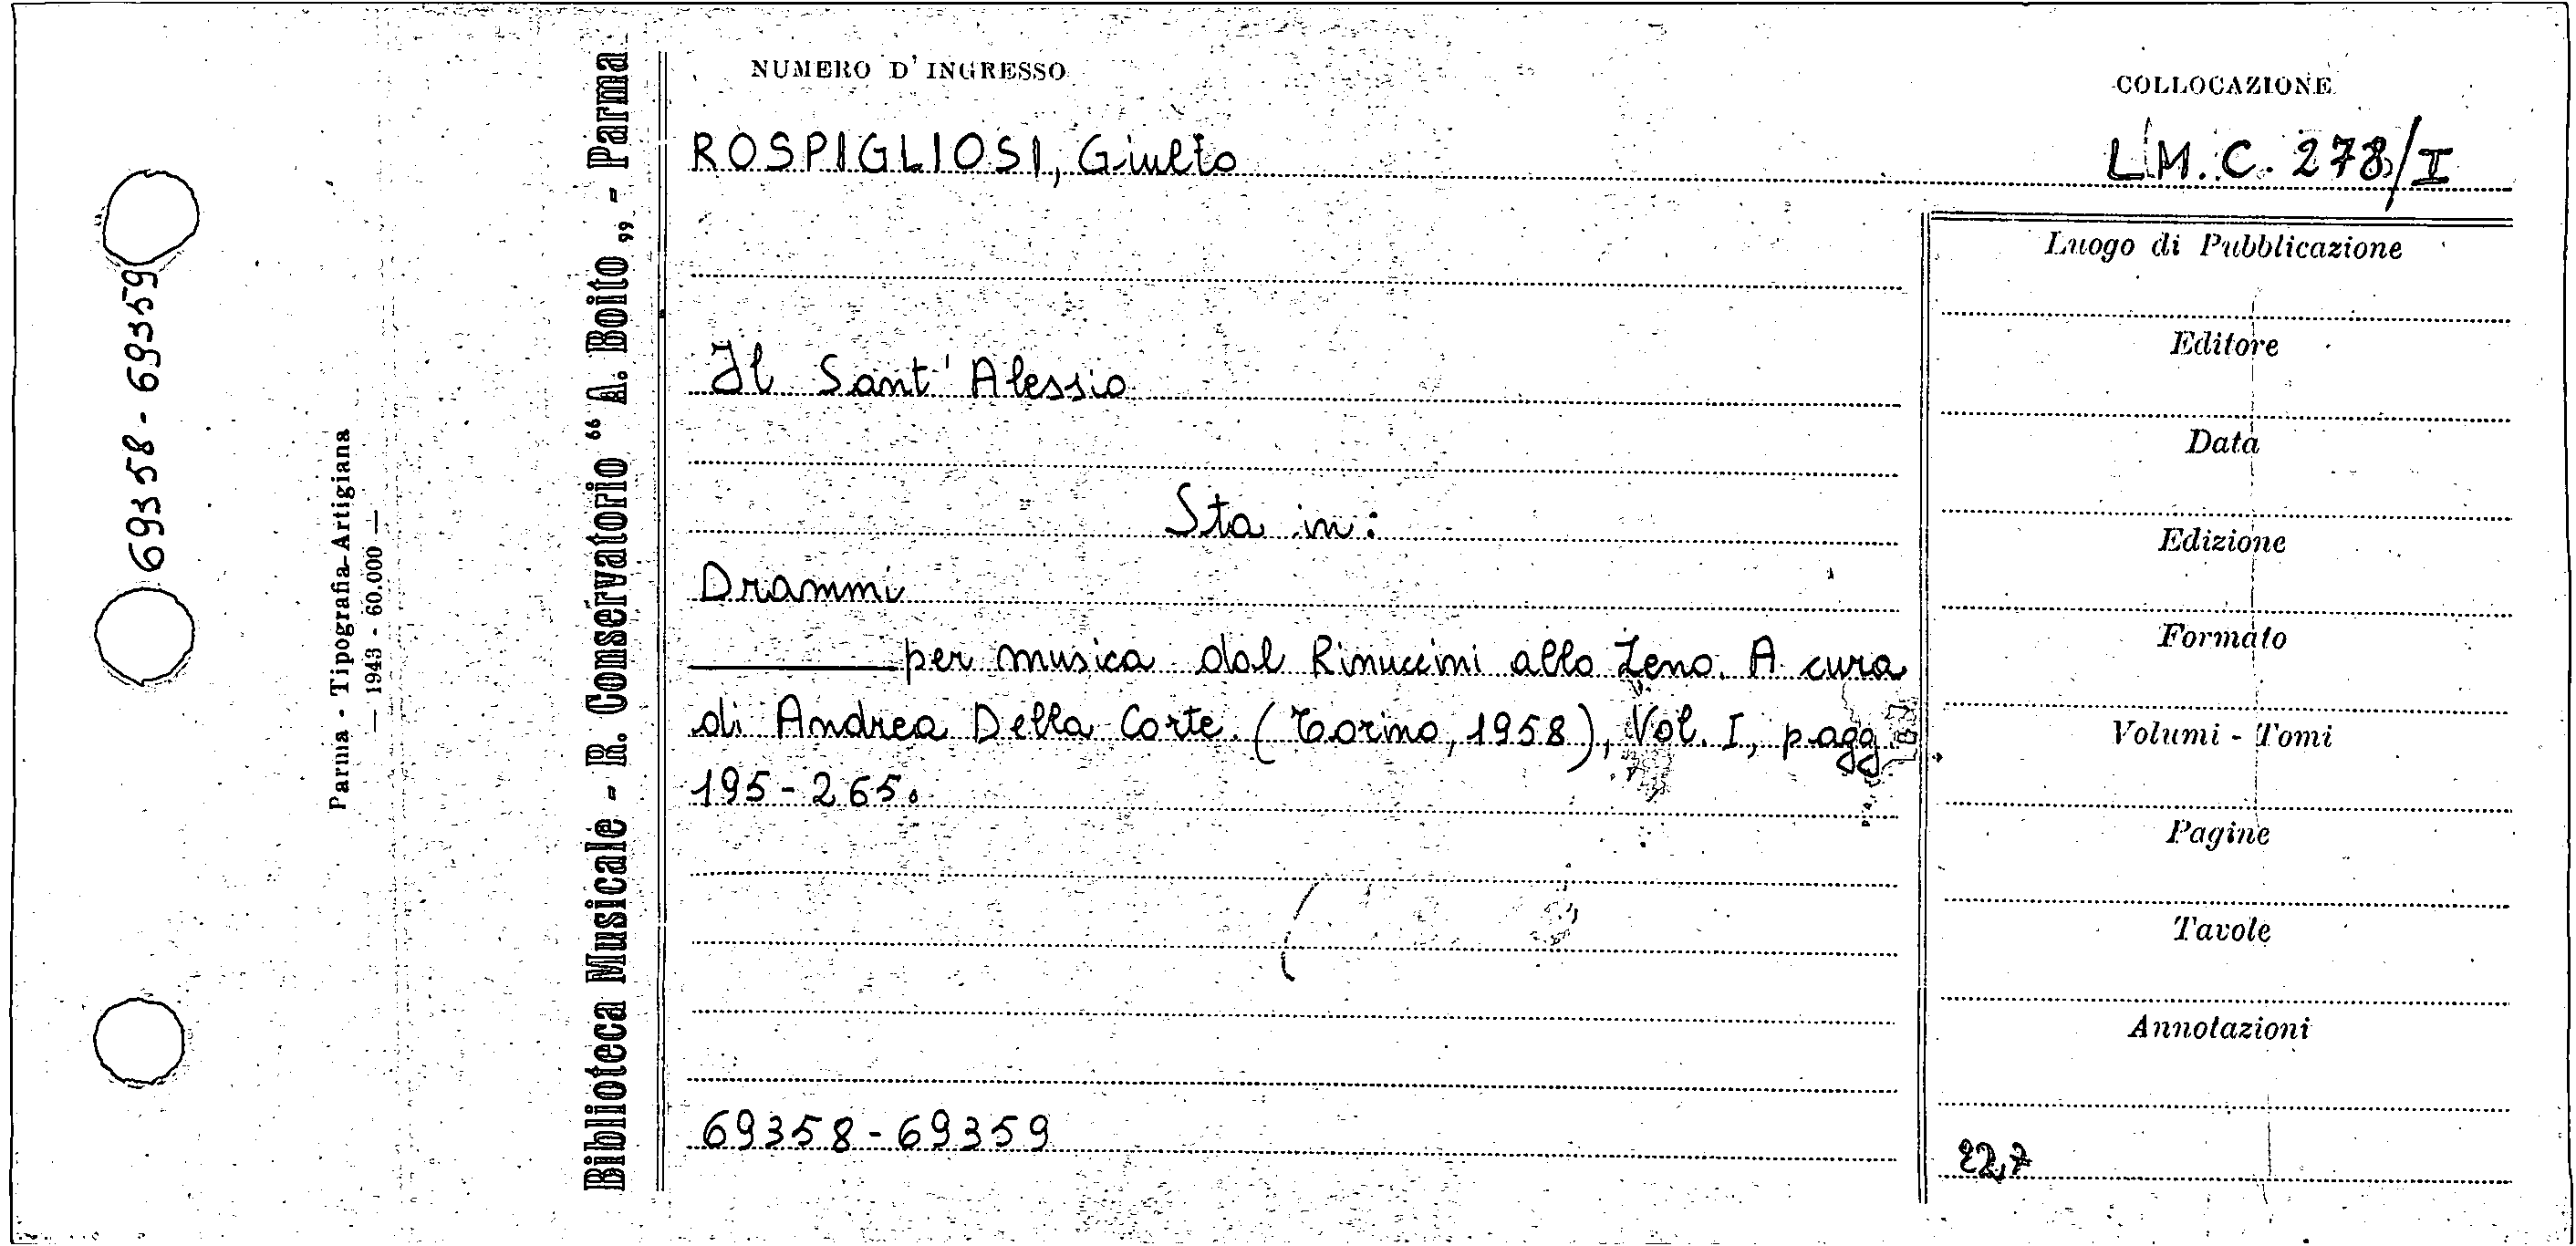 NUMERO D'INGRESSO
COLLOCAZIONE
ROSPIGLIOSI, Giulio
L.M.C. 278/I
Il Sant'Alessio
Sta in:
Drammi
per musica dal Rinuccini allo Zeno. A cura
di Andrea Della Corte. (Torino, 1958), Vol. I, pagg.
195-265.
69358-69359
Luogo di Pubblicazione
Editore
Data
Edizione
Formato
Volumi - Tomi
Pagine
Tavole
Annotazioni
22,7
Biblioteca Musicale - R. Conservatorio “A. Boito„ - Parma
Parma - Tipografia Artigiana
— 1943 - 60.000 —
69358-69359